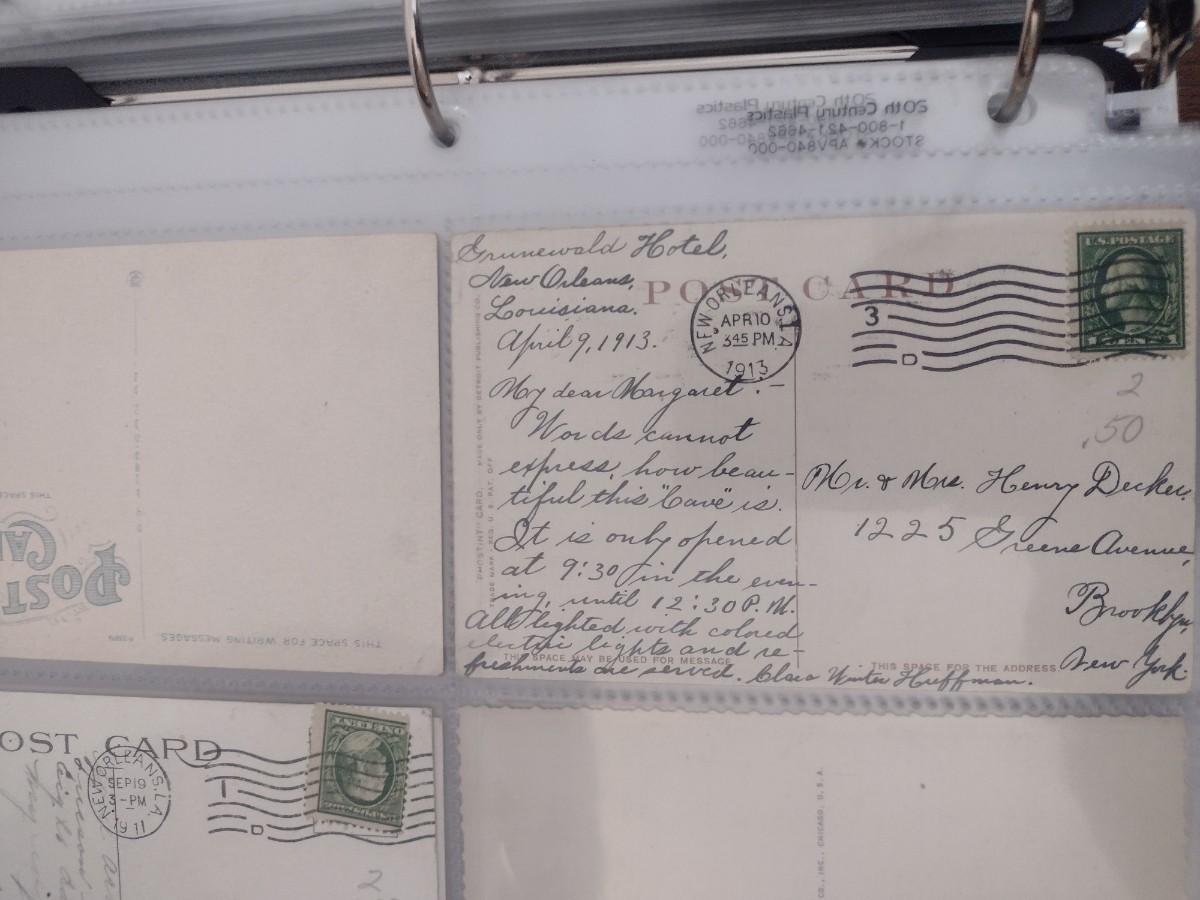 20th Century Plastics
1-800-421-4662
STOCK# APV840-000
Grunewald Hotel,
New Orleans,
Louisiana.
April 9, 1913.
My dear Margaret:-
Words cannot
express, how beau-
tiful this "Cave" is.
It is only opened
at 9:30 in the even-
ing, until 12:30 P.M.
All lighted with colored
electric lights and re-
freshments are served. Clara Winter Huffman.
POST CARD
NEW ORLEANS, LA
APR 10
3 45 PM
1913
3
D
U.S. POSTAGE
1 1
2
.50
Mr. & Mrs. Henry Decker,
1225 Greene Avenue,
Brooklyn,
New York.
"PHOSTINT" CARD, MADE ONLY BY DETROIT PUBLISHING CO.
TRADE MARK REG. U.S. PAT. OFF.
THIS SPACE MAY BE USED FOR MESSAGE
THIS SPACE FOR THE ADDRESS
THIS SPACE
POST
CA
THIS SPACE FOR WRITING MESSAGES.
OST CARD
NEW ORLEANS, LA.
SEP 19
3-PM
1911
1
D
2
CO., INC., CHICAGO, U.S.A.